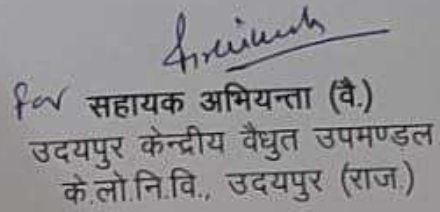 for सहायक अभियन्ता (वै.)
उदयपुर केन्द्रीय वैधुत उपमण्डल
के.लो.नि.वि., उदयपुर (राज.)